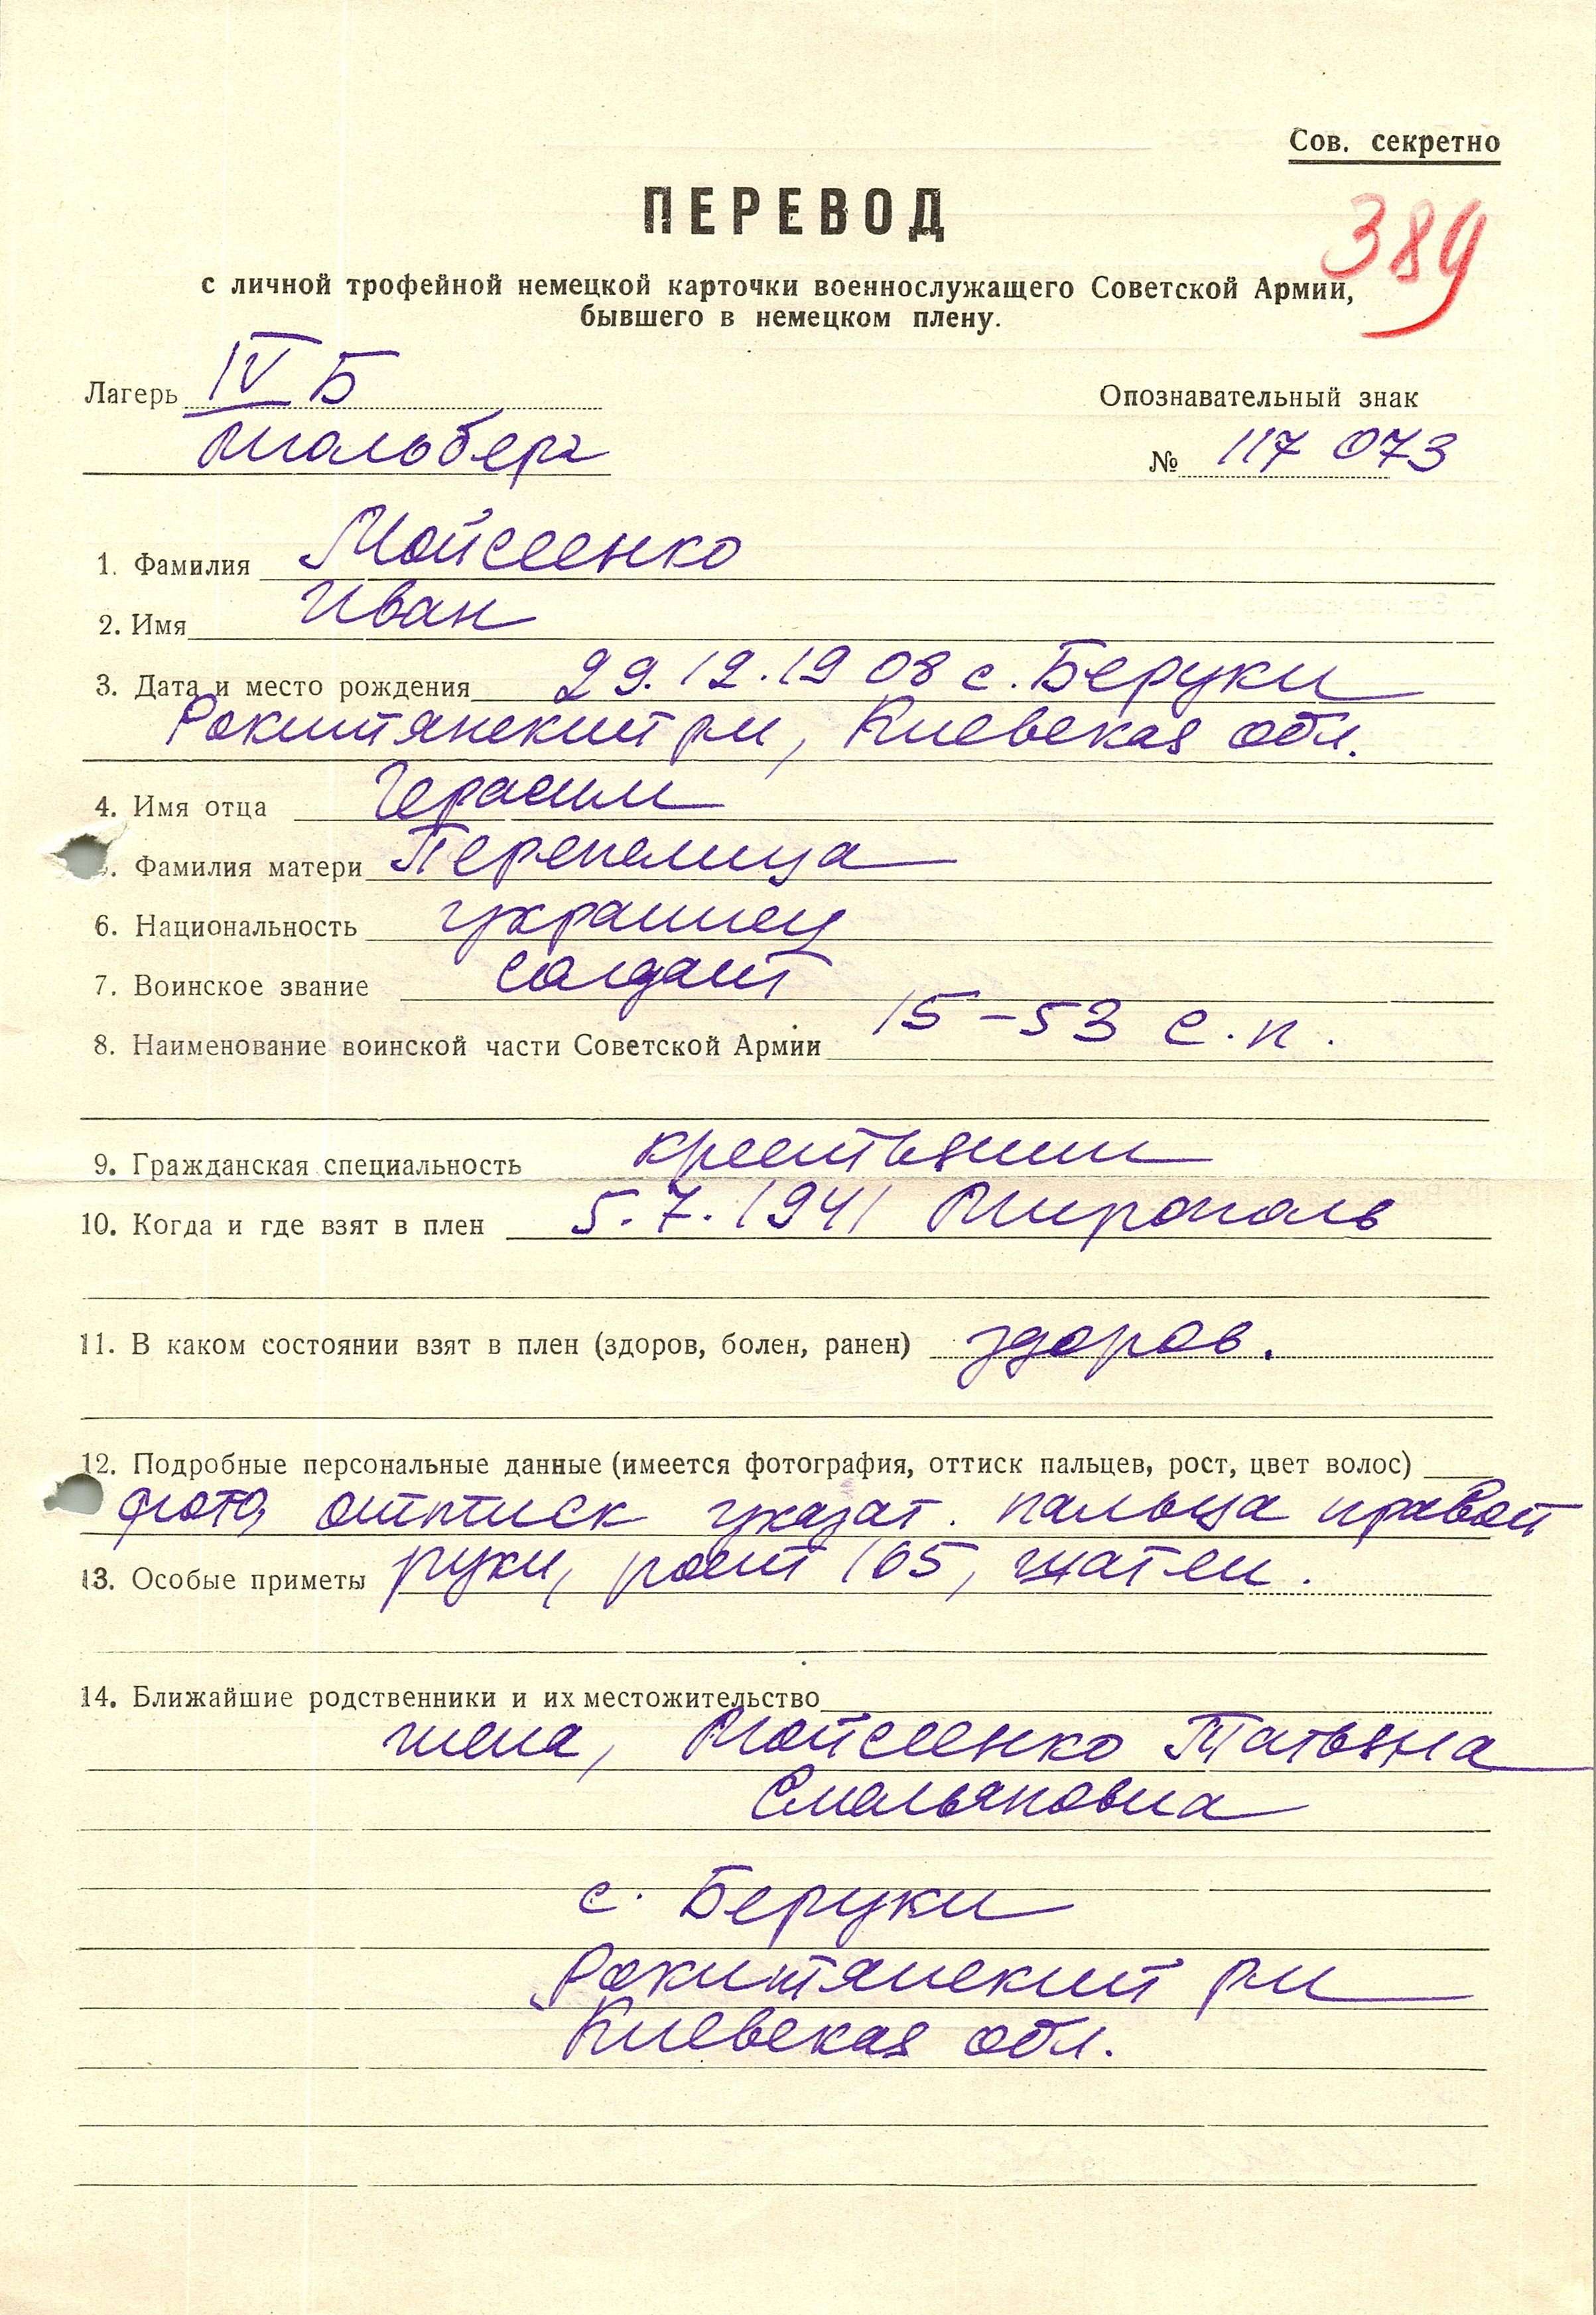 Сов. секретно
ПЕРЕВОД
389
с личной трофейной немецкой карточки военнослужащего Советской Армии,
бывшего в немецком плену.
Лагерь IV Б
Мюльберг
Опознавательный знак
№ 117 073
1. Фамилия Мойсеенко
2. Имя Иван
3. Дата и место рождения 29.12.1908 с. Беруки
Рокитянский рн, Киевская обл.
4. Имя отца Герасим
. Фамилия матери Перепелица
6. Национальность украинец
7. Воинское звание солдат
8. Наименование воинской части Советской Армии 15-53 с.п.
9. Гражданская специальность крестьянин
10. Когда и где взят в плен 5.7.1941 Мирополь
11. В каком состоянии взят в плен (здоров, болен, ранен) здоров.
12. Подробные персональные данные (имеется фотография, оттиск пальцев, рост, цвет волос)
фото, оттиск указат. пальца правой
13. Особые приметы руки, рост 165, шатен.
14. Ближайшие родственники и их местожительство
жена, Мойсеенко Татьяна
с. Беруки
Рокитянский рн
Киевская обл.